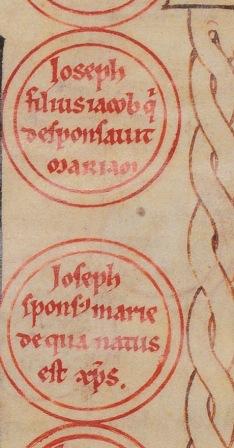 Ioseph
filius iacob q̄
desponsauit
mariam
Ioseph
spons᷒ marie
de qua natus
est xp̄s.